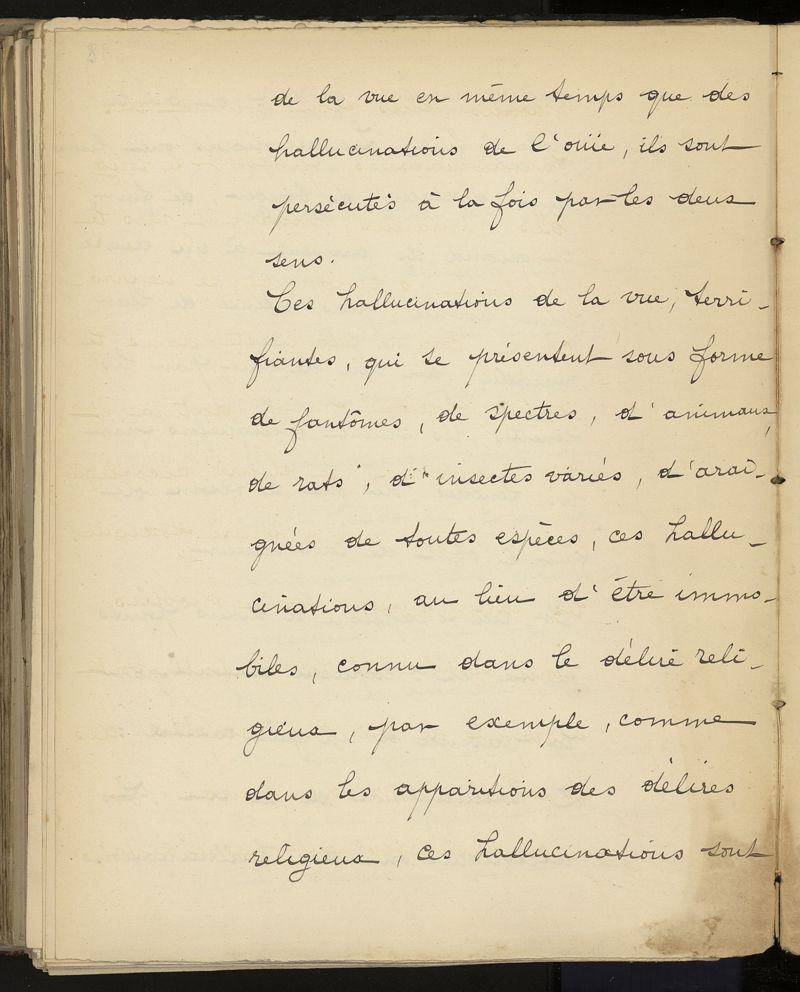 de la vue en même temps que des
hallucinations de l'ouïe, ils sont
persécutés à la fois par les deux
sens.
Ces hallucinations de la vue, terri-
fiantes, qui se présentent sous forme
de fantômes, de spectres, d'animaux,
de rats, d'insectes variés, d'arai-
gnées de toutes espèces, ces hallu-
cinations, au lieu d'être immo-
biles, connu dans le délire reli-
gieux, par exemple, comme
dans les apparitions des délires
religieux, ces hallucinations sont